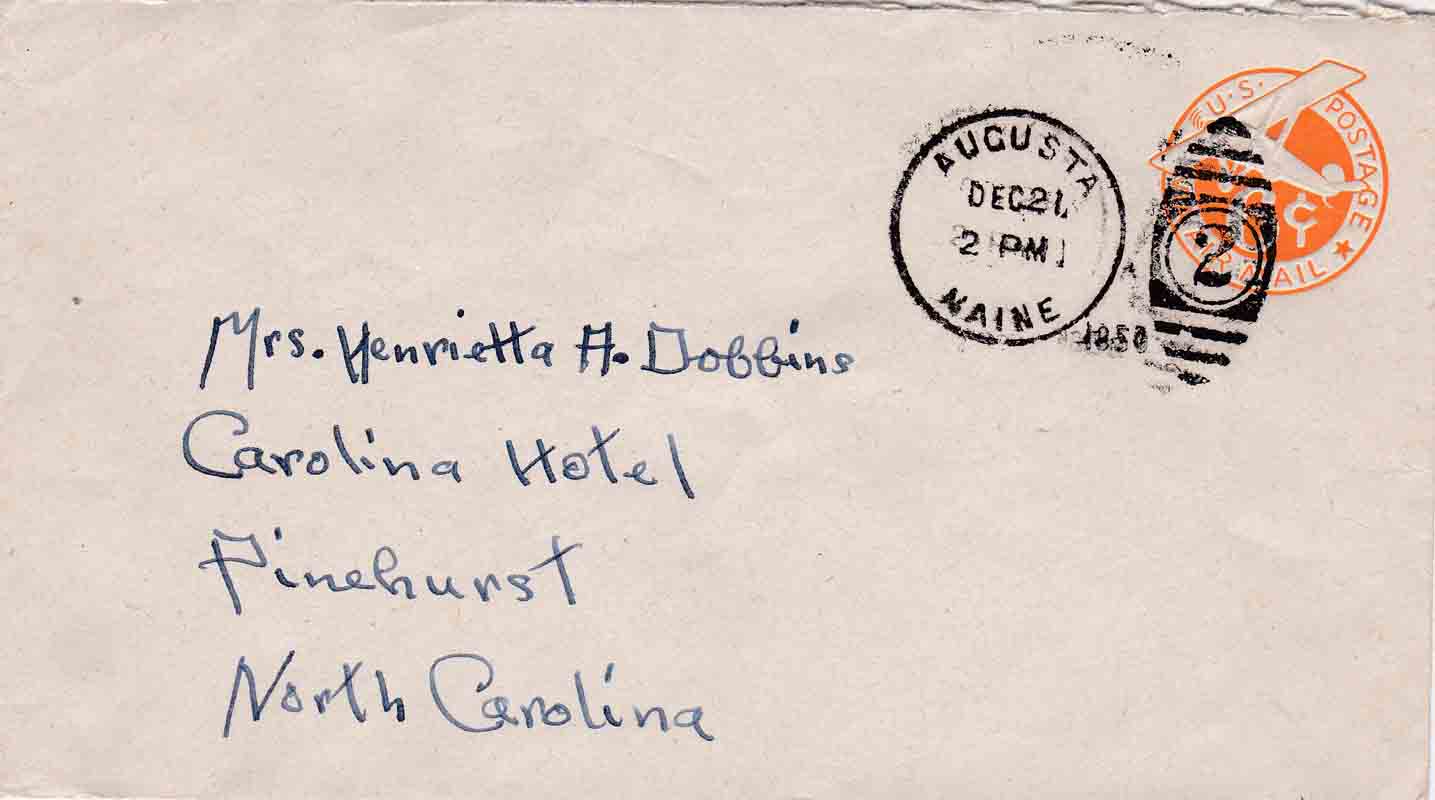 U.S. POSTAGE
AIR MAIL
¢
AUGUSTA
DEC 21
2 PM
MAINE
2
Mrs. Henrietta A. Dobbins
Carolina Hotel
Pinehurst
North Carolina